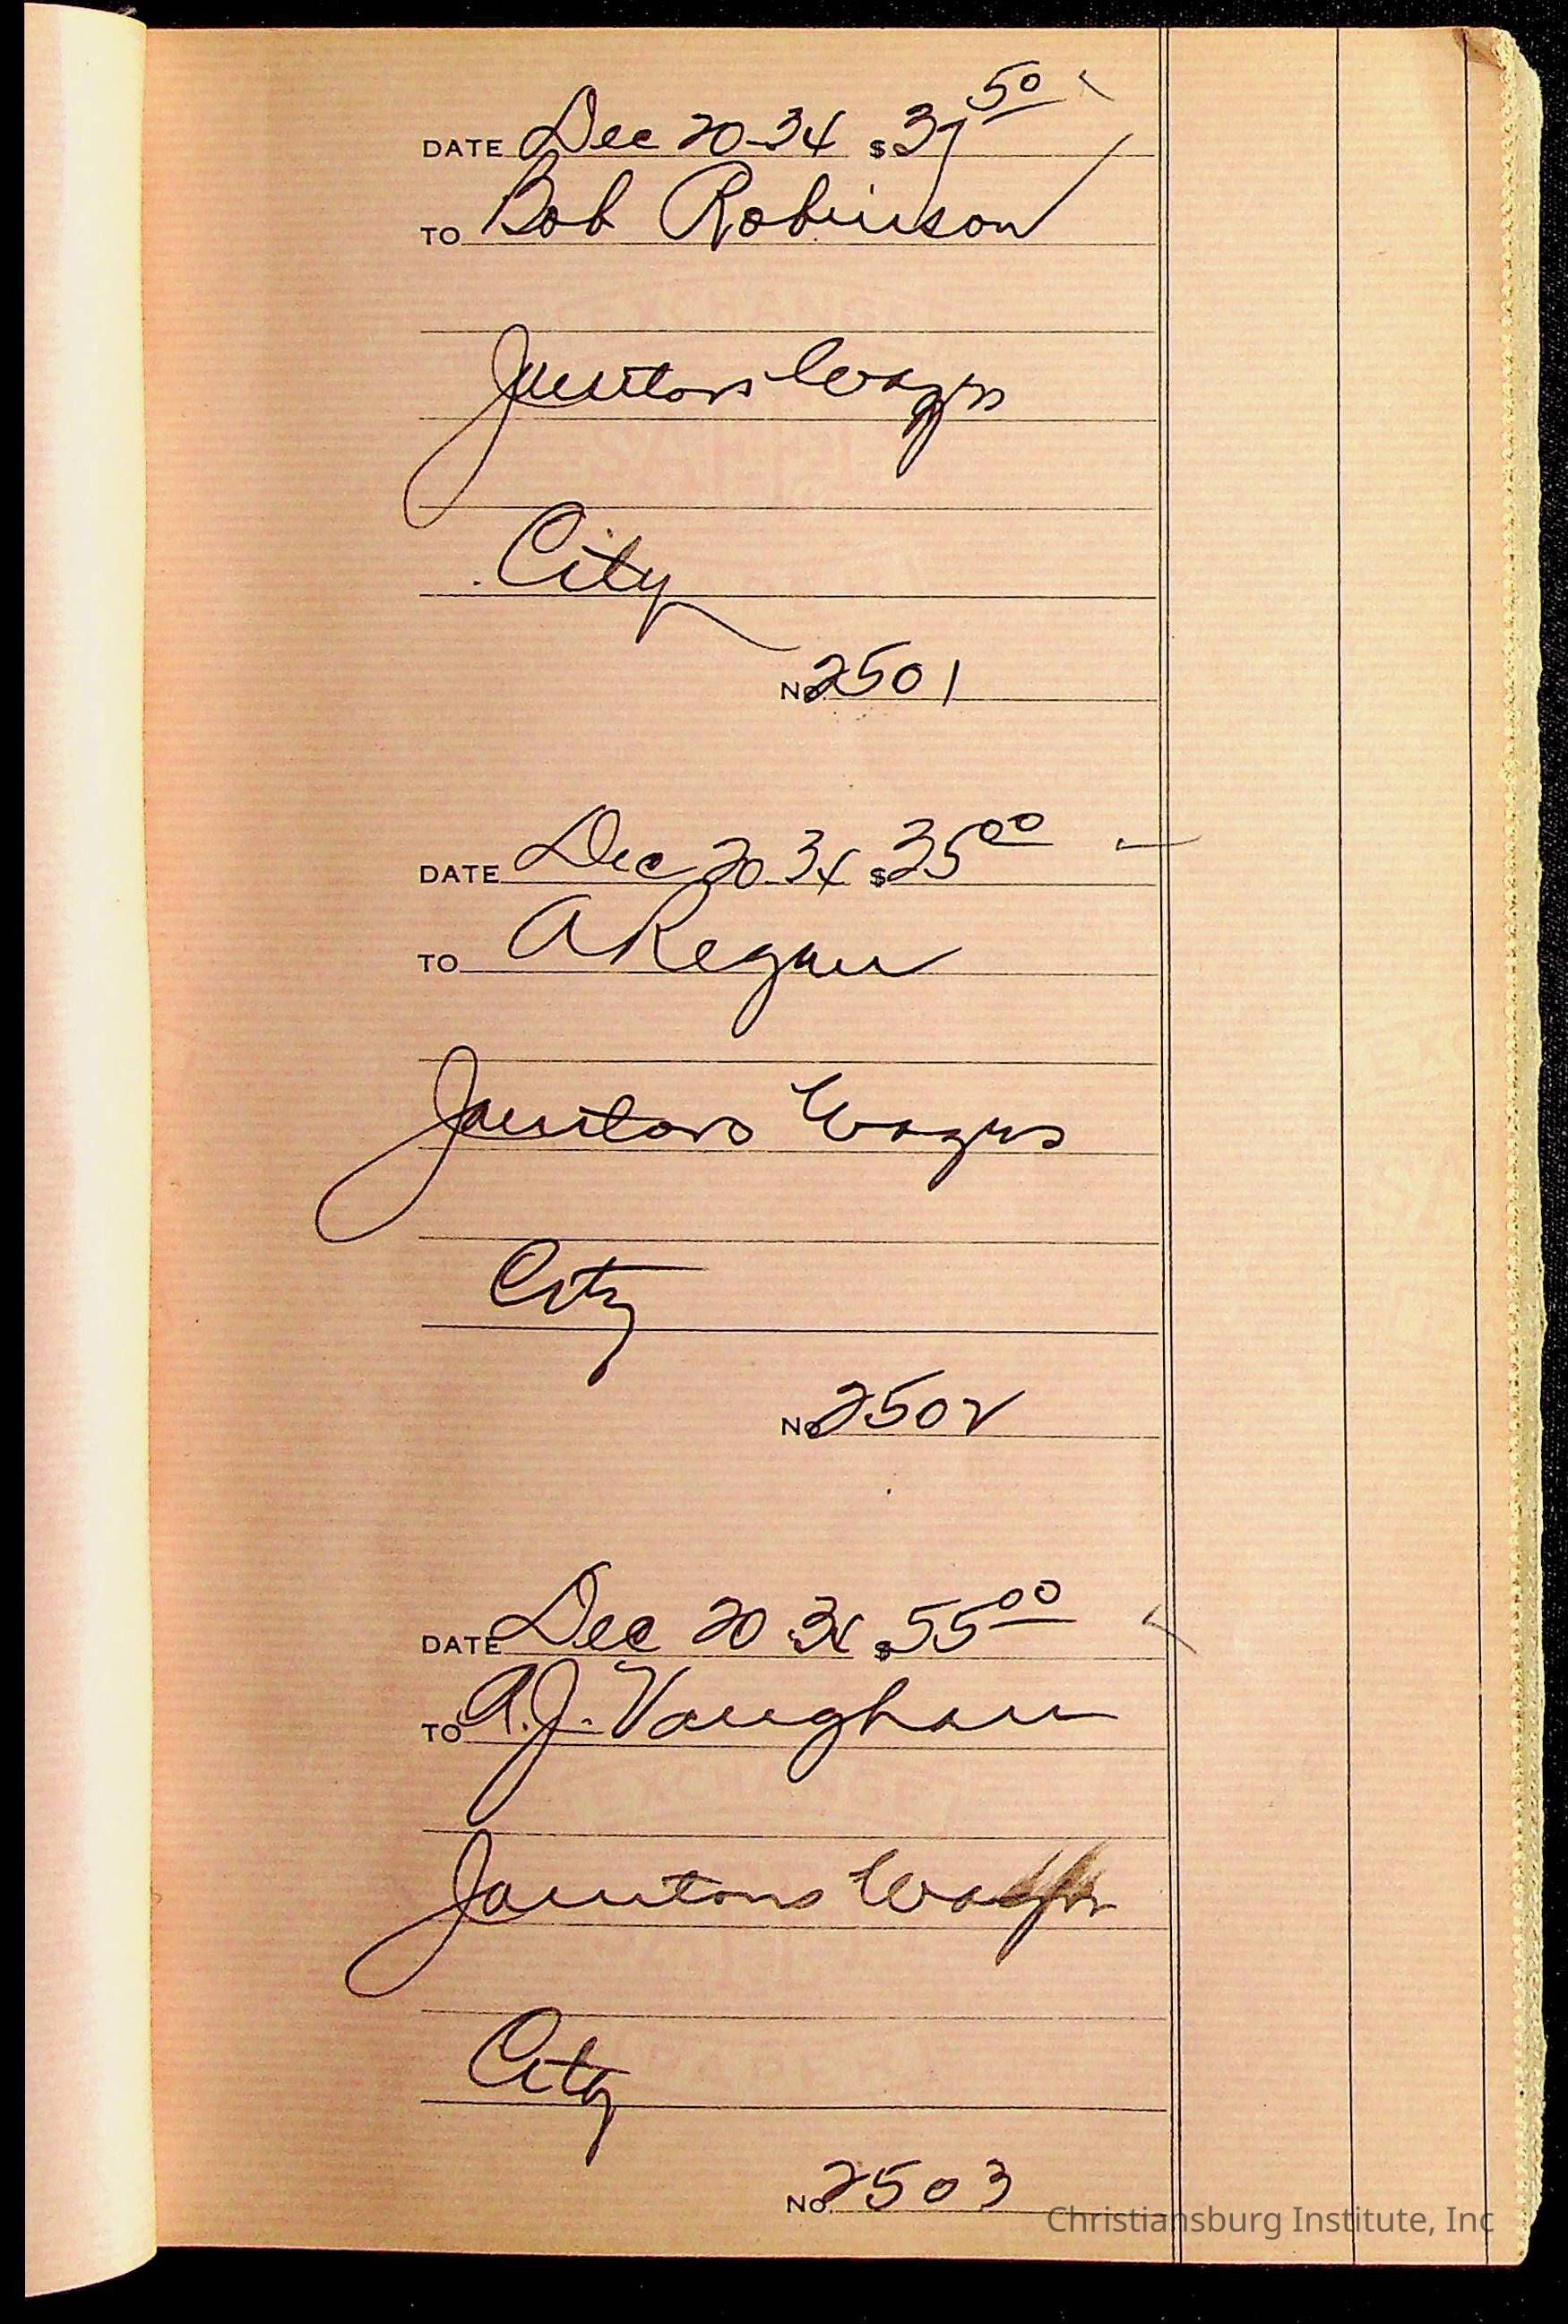 DATE Dec 20-34 $37 50
TO Bob Robinson
Janitors Wages
City
No. 2501
DATE Dec 20-34 $35 00
TO A Regan
Janitors Wages
City
No. 2502
DATE Dec 20 34 $55 00
TO A.J. Vaughan
Janitors Wages
City
No. 2503
Christiansburg Institute, Inc